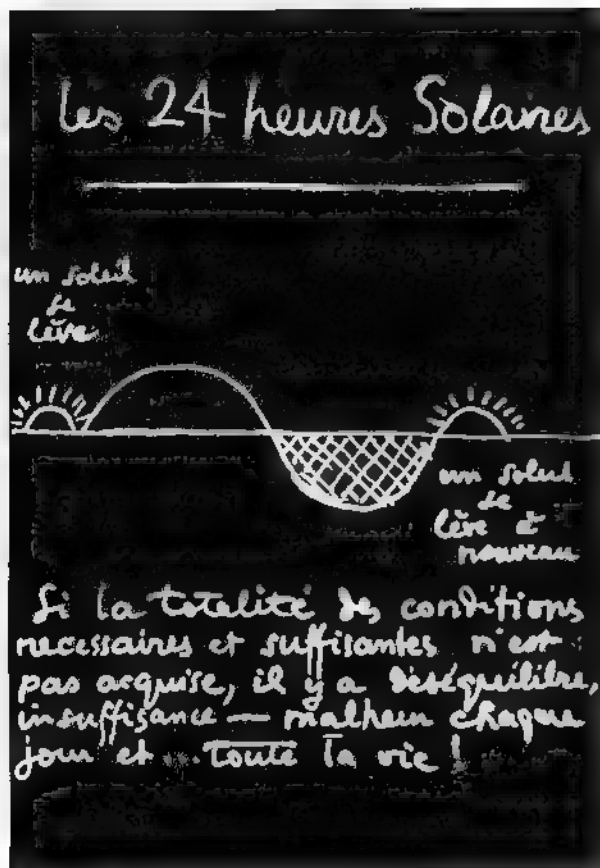 les 24 heures Solaires
un soleil
se
lève
un soleil
se
lève à
nouveau
Si la totalité des conditions
necessaires et suffisantes n'est
pas acquise, il y a déséquilibre,
insuffisance — malheur chaque
jour et toute la vie !